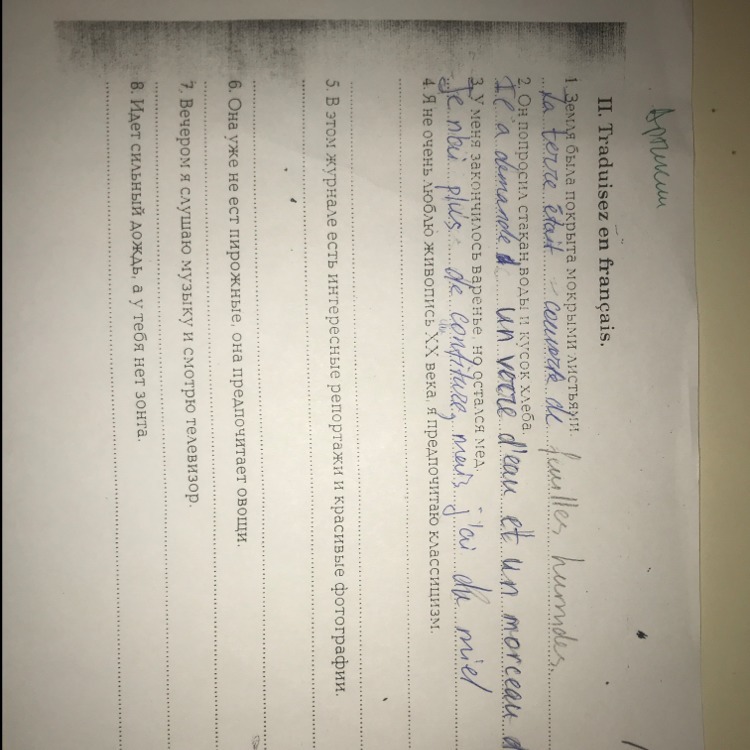 Артикли
II. Traduisez en français.
1. Земля была покрыта мокрыми листьями.
La terre était couverte de feuilles humides.
2. Он попросил стакан воды и кусок хлеба.
a demandé un verre d'eau et un morceau d
3. У меня закончилось варенье, но остался мед.
Je n'ai plus de confiture, mais j'ai du miel
4. Я не очень люблю живопись XX века, я предпочитаю классицизм.
5. В этом журнале есть интересные репортажи и красивые фотографии.
6. Она уже не ест пирожные, она предпочитает овощи.
7. Вечером я слушаю музыку и смотрю телевизор.
8. Идет сильный дождь, а у тебя нет зонта.